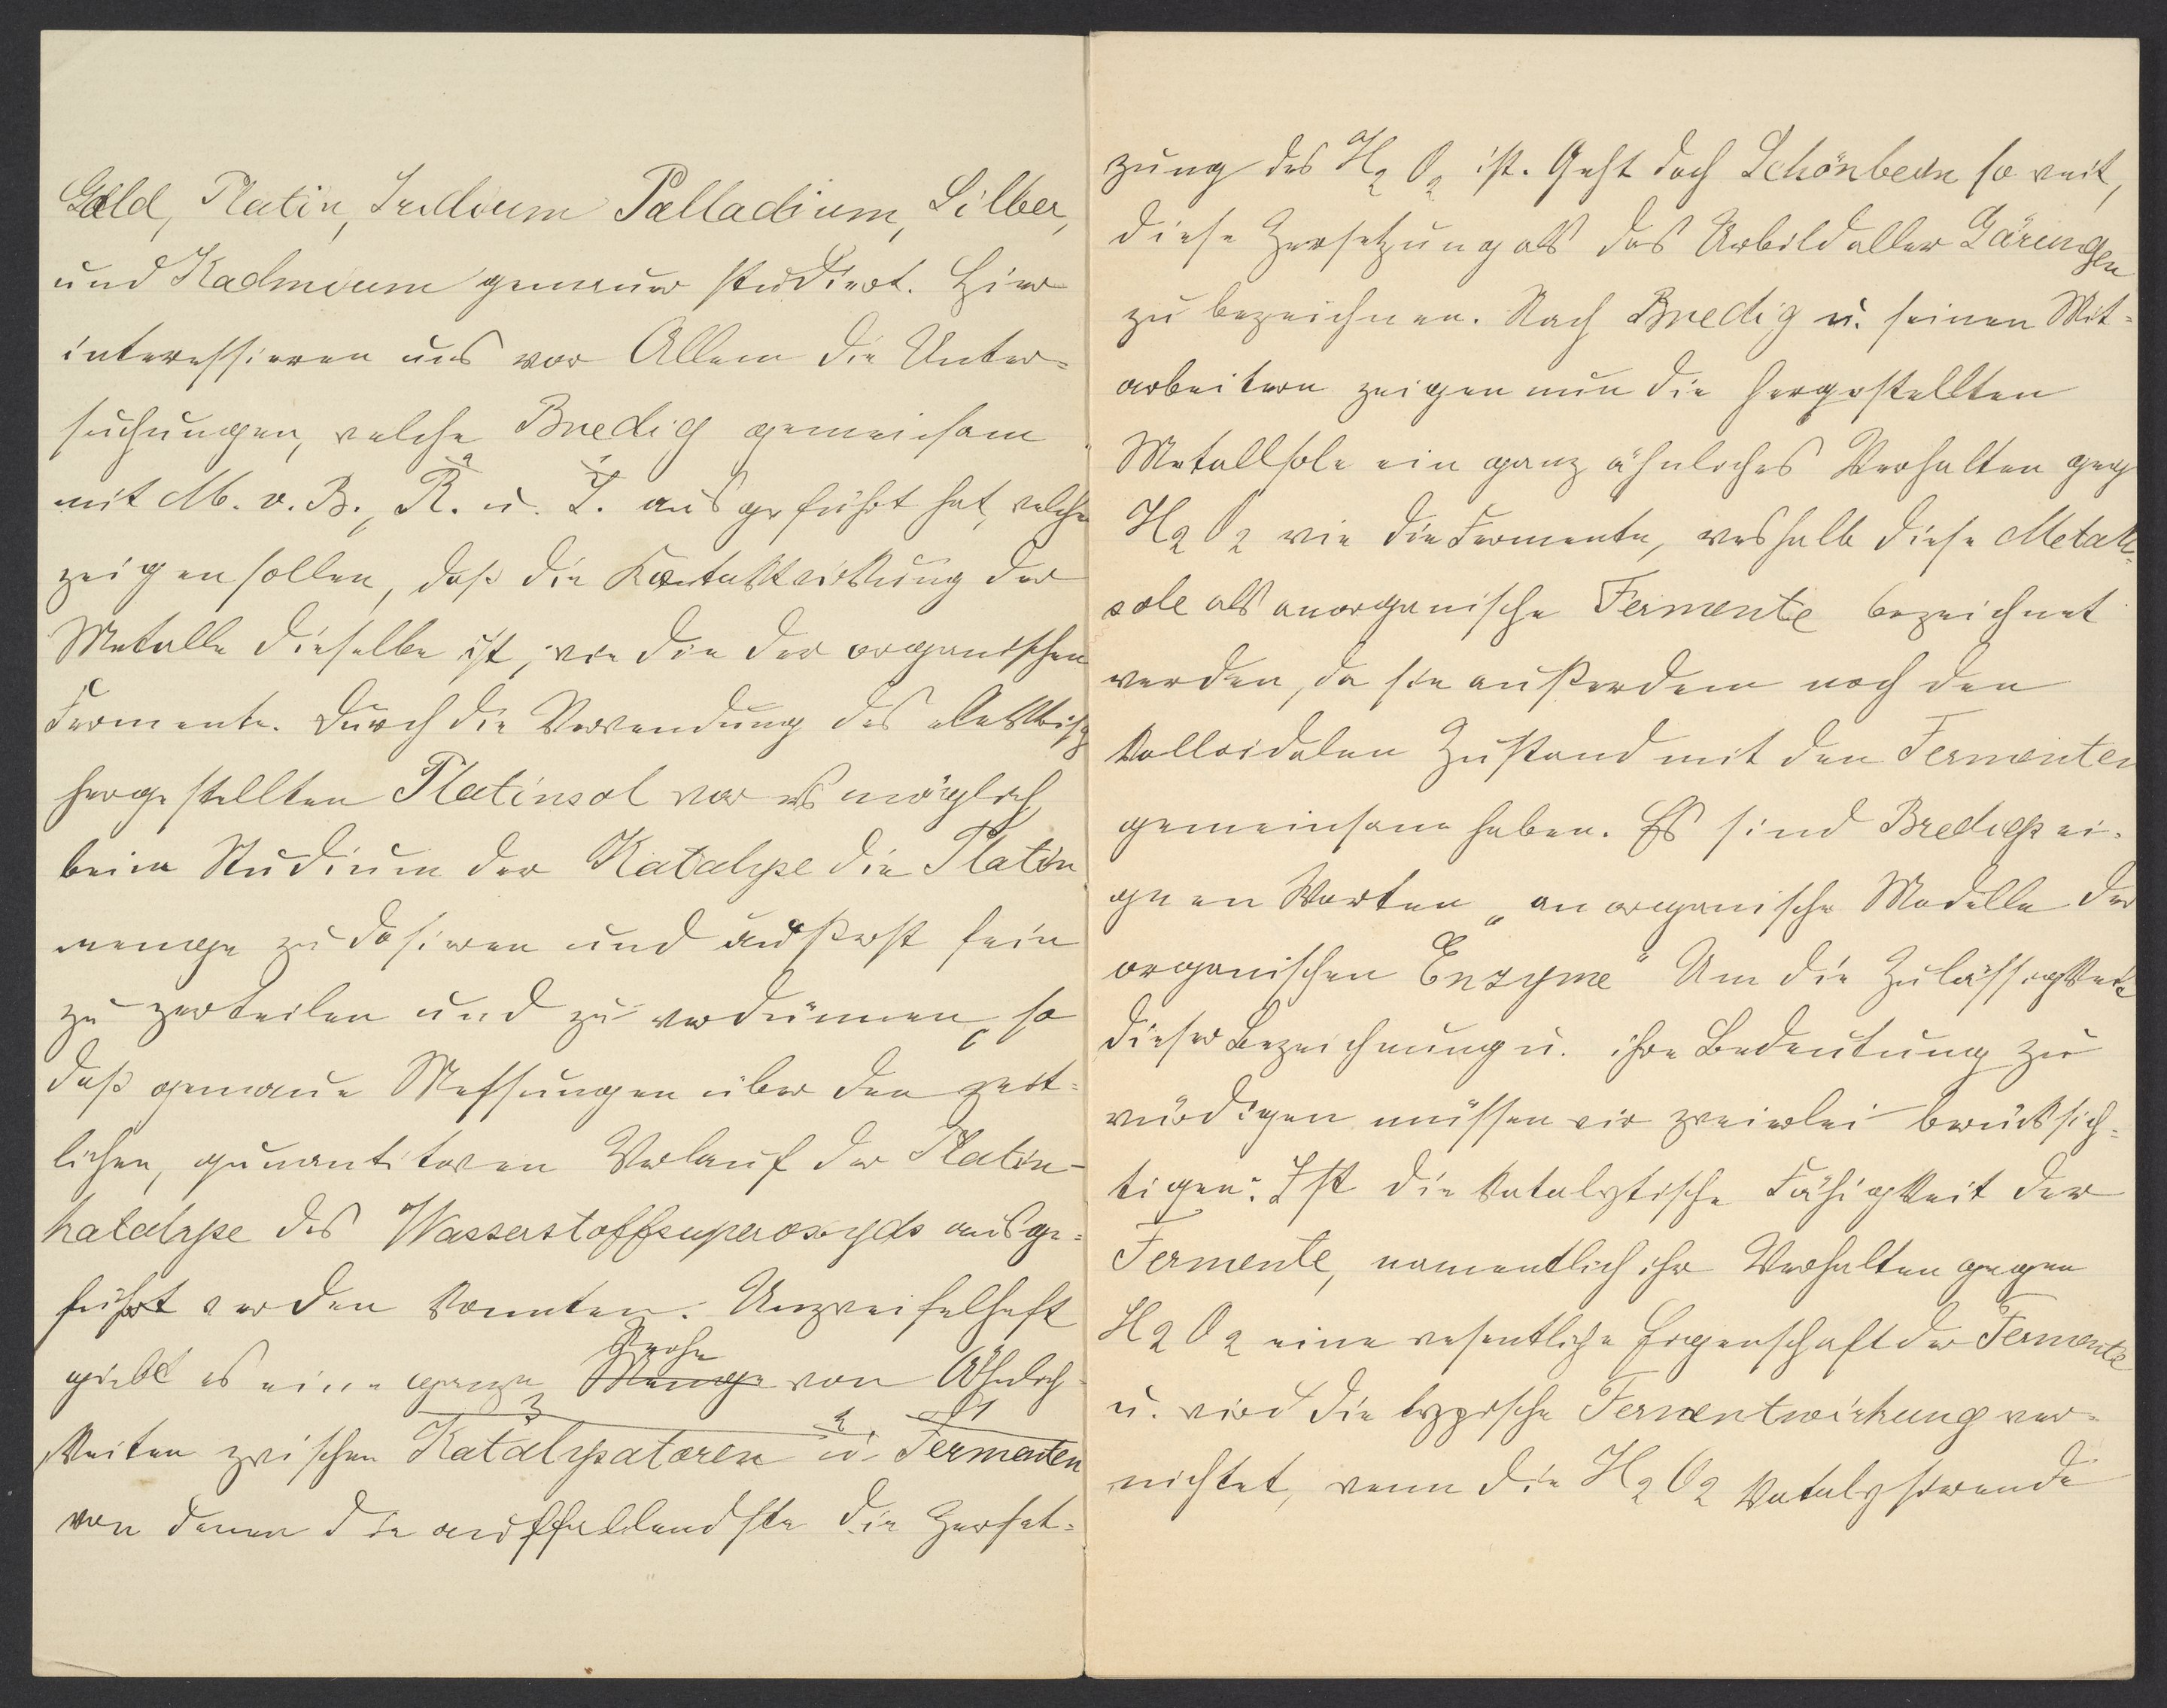 Gold, Platin, Iridium Palladium, Silber,
und Kadmium genauer studiert. Hier
interessieren uns vor Allem die Unter=
suchungen, welche Bredig gemeinsam
mit M. v. B., R. u. I. ausgeführt hat, welche
zeigen sollen, daß die Kontaktwirkung der
Metalle dieselbe ist, wie die der organischen
Fermente. Durch die Verwendung des elektrisch
hergestellten Platinsol war es möglich,
beim Studium der Katalyse die Platin
menge zu dosieren und äußerst fein
zu zerteilen und zu verdünnen, so
daß genaue Messungen über den zeit=
lichen, quantitaven Verlauf der Platin-
katalyse des Wasserstoffsuperoxyds ausge=
führt werden konnten. Unzweifelhaft
giebt es eine ganze Menge Reihe von Ähnlich-
keiten zwischen Katalysatoren u. Fermenten
von denen die auffallendste die Zerset=
zung des H2O2 ist. Geht doch Schönbein so weit,
diese Zersetzung als das Urbild aller Gärungen
zu bezeichnen. Nach Bredig u. seinen Mit=
arbeitern zeigen nun die hergestellten
Metallsole ein ganz ähnliches Verhalten geg
H2O2 wie die Fermente, weshalb diese Metall=
sole als anorganische Fermente bezeichnet
werden, da sie außerdem noch den
kolloidalen Zustand mit den Fermenten
gemeinsam haben. Es sind Bredigs ei-
genen Worten „anorganische Modelle der
organischen Enzyme“ Um die Zulässigkeit
dieser Bezeichnung u. ihre Bedeutung zu
würdigen müssen wir zweierlei berücksich=
tigen: Ist die katalytische Fähigkeit der
Fermente, namentlich ihr Verhalten gegen
H2O2 eine wesentliche Eigenschaft der Fermente
u. wird die typische Fermentwirkung ver=
nichtet, wenn die H2O2 katalysierende